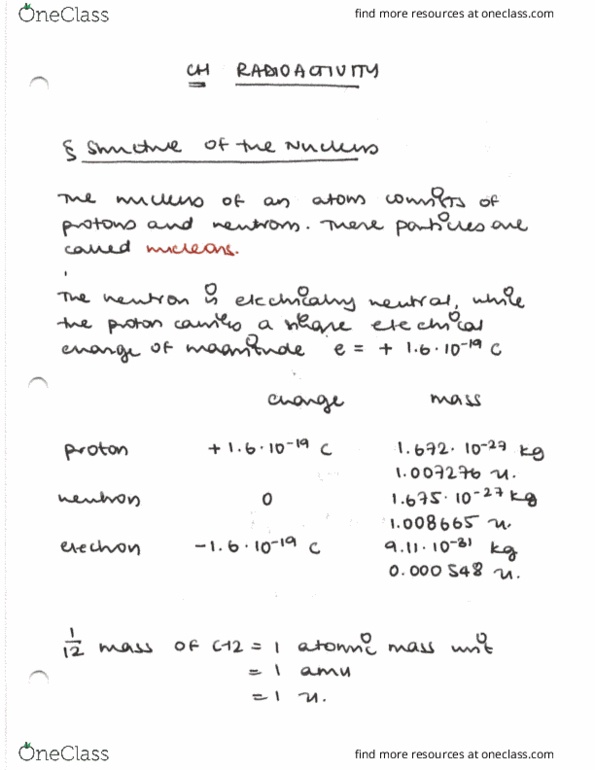 OneClass
find more resources at oneclass.com
CH RADIOACTIVITY
§ Structure of the Nucleus
The nucleus of an atom consists of
protons and neutrons. These particles are
called nucleons.
The neutron is electrically neutral, while
the proton carries a single electrical
charge of magnitude e = + 1.6·10⁻¹⁹ C
charge mass
proton +1.6·10⁻¹⁹ C 1.672·10⁻²⁷ kg
1.007276 u.
neutron 0 1.675·10⁻²⁷ kg
1.008665 u.
electron −1.6·10⁻¹⁹ C 9.11·10⁻³¹ kg
0.000548 u.
1/12 mass of C-12 = 1 atomic mass unit
= 1 amu
= 1 u.
OneClass
find more resources at oneclass.com